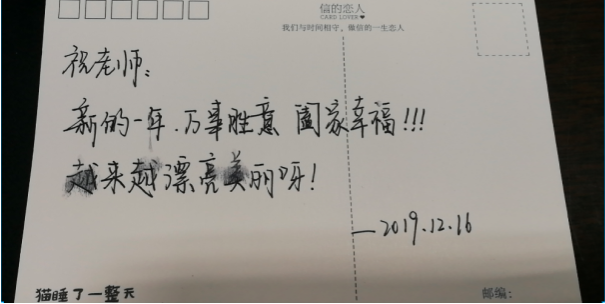 信的恋人
CARD LOVER
我们与时间相守，做信的一生恋人
祝老师：
新的一年.万事胜意 阖家幸福!!!
越来越漂亮美丽呀!
—2019.12.16
猫睡了一整天
邮编: